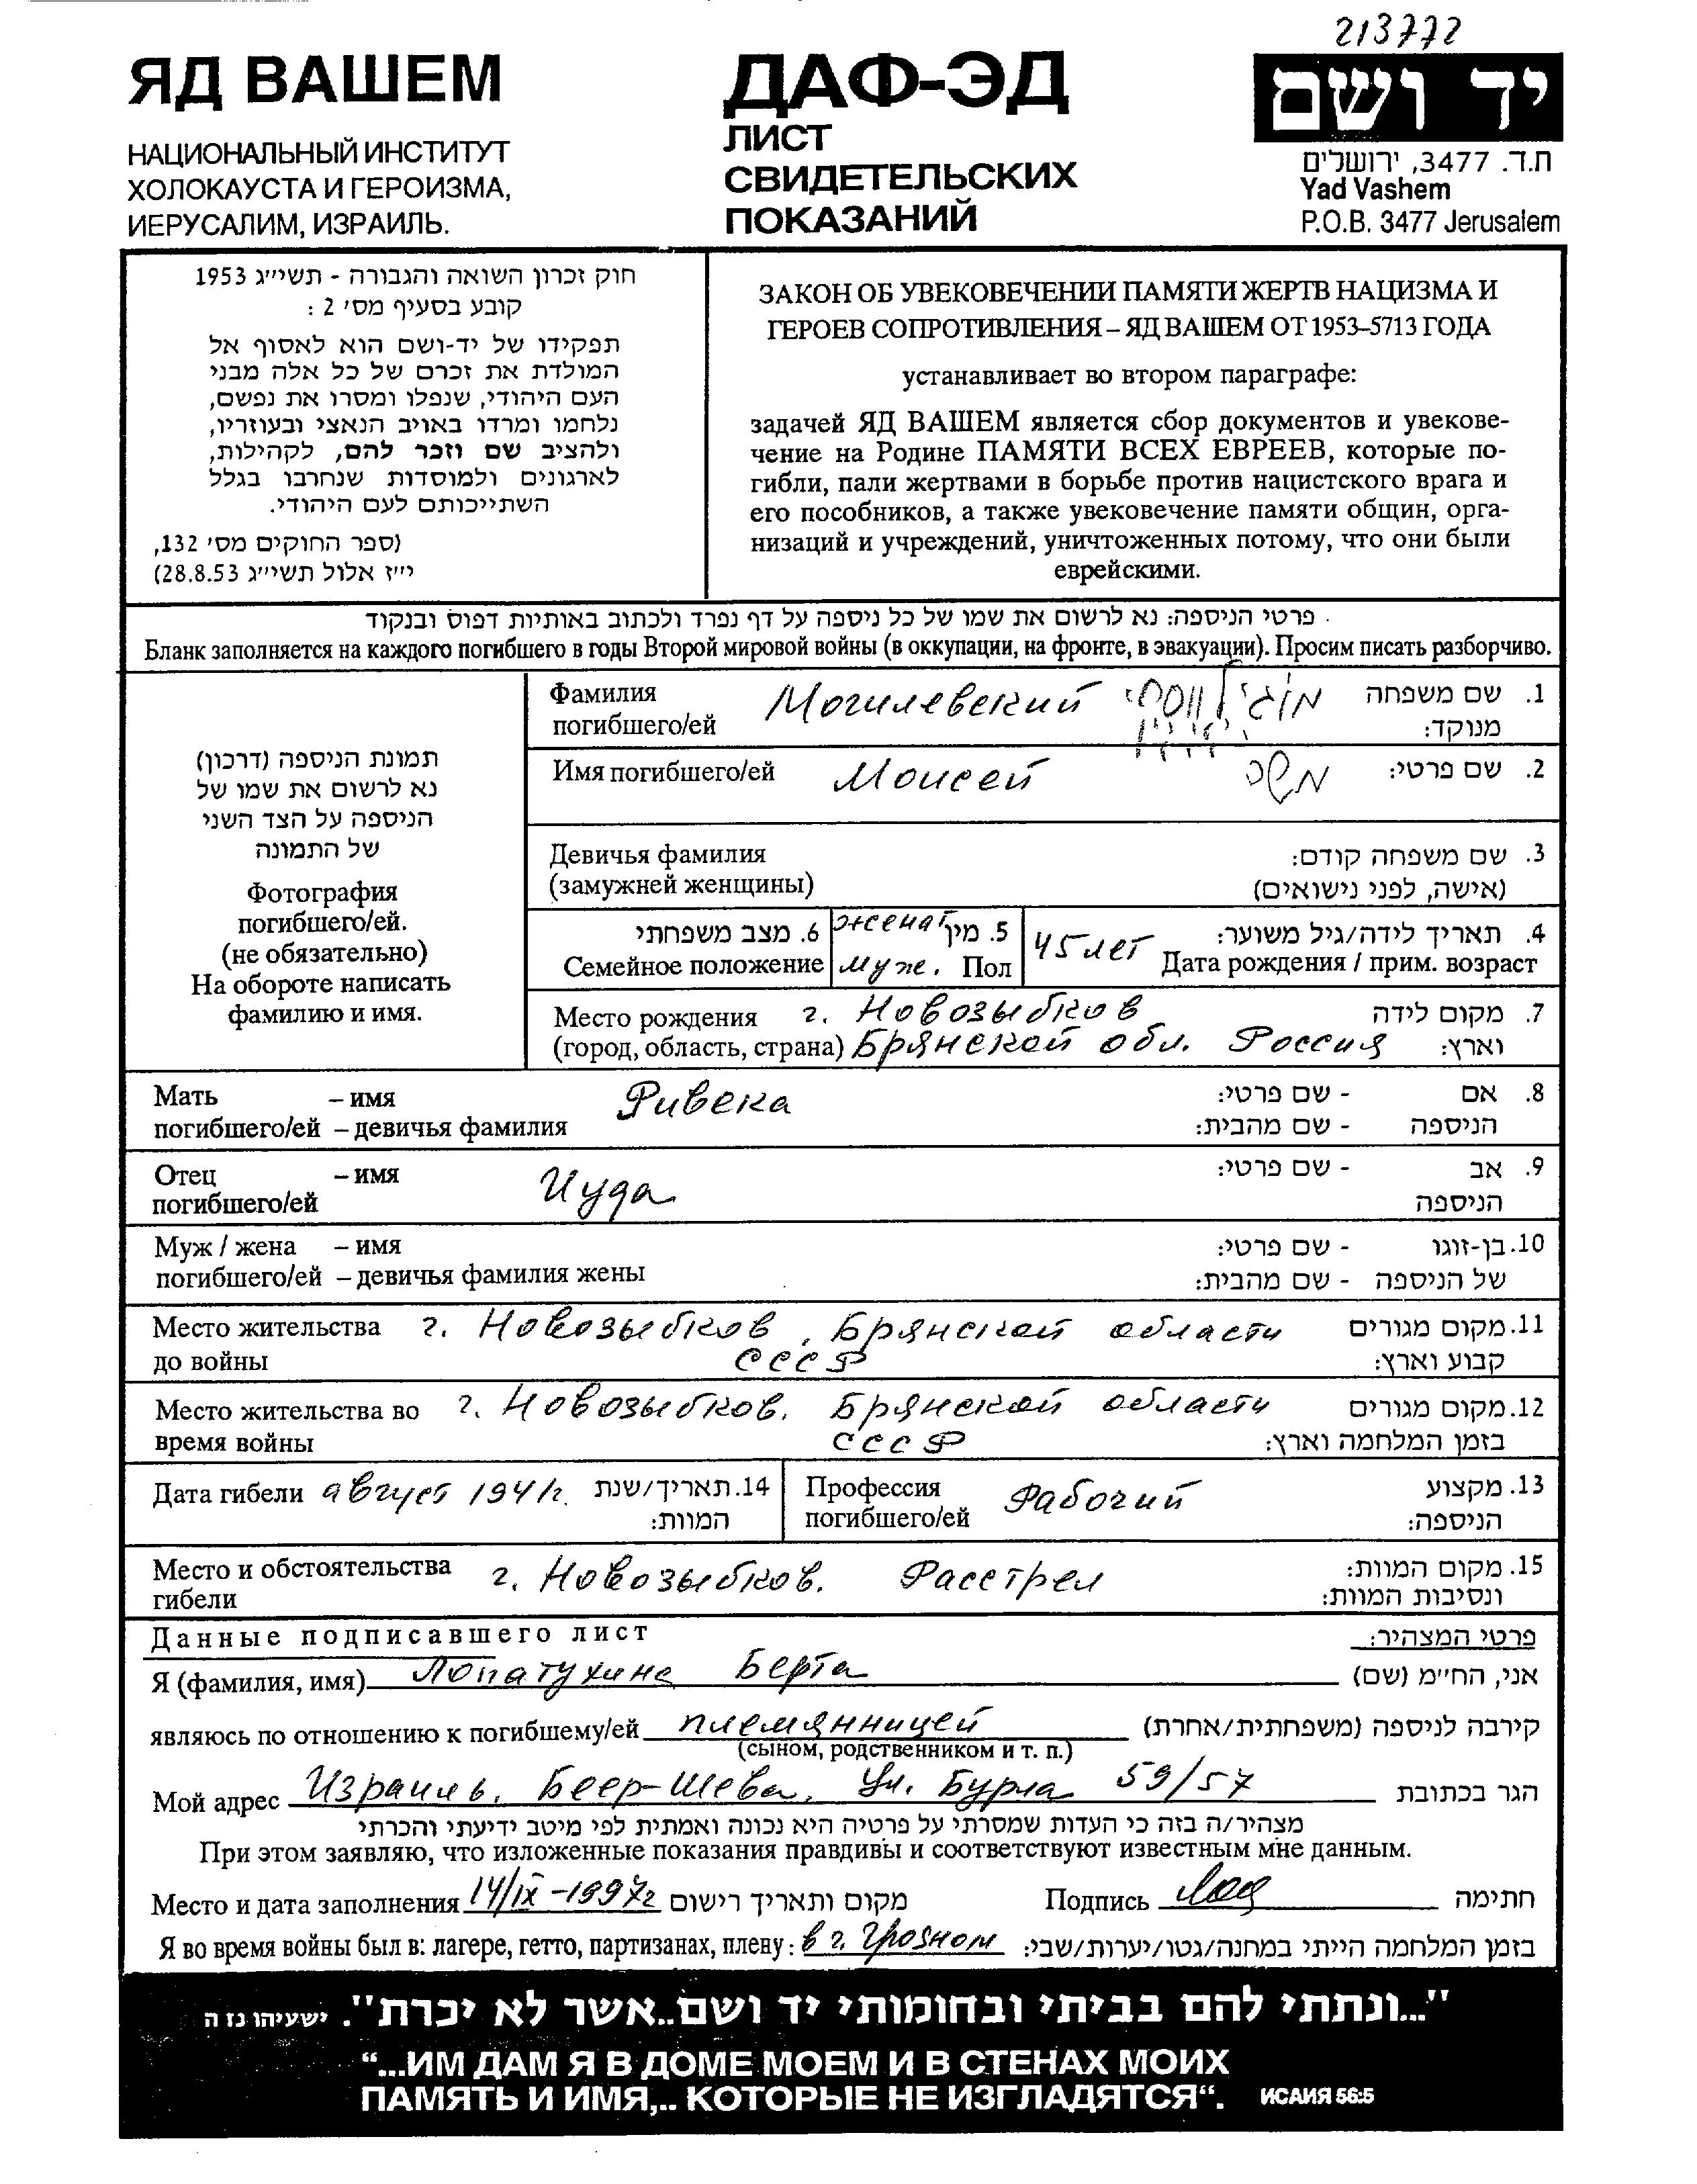 213772
ЯД ВАШЕМ
НАЦИОНАЛЬНЫЙ ИНСТИТУТ
ХОЛОКАУСТА И ГЕРОИЗМА,
ИЕРУСАЛИМ, ИЗРАИЛЬ.
ДАФ-ЭД
ЛИСТ
СВИДЕТЕЛЬСКИХ
ПОКАЗАНИЙ
יד ושם
ת.ד. 3477, ירושלים
Yad Vashem
P.O.B. 3477 Jerusalem
חוק זכרון השואה והגבורה - תשי״ג 1953
קובע בסעיף מס׳ 2 :
תפקידו של יד-ושם הוא לאסוף אל
המולדת את זכרם של כל אלה מבני
העם היהודי, שנפלו ומסרו את נפשם,
נלחמו ומרדו באויב הנאצי ובעוזריו,
ולהציב שם וזכר להם, לקהילות,
לארגונים ולמוסדות שנחרבו בגלל
השתייכותם לעם היהודי.
(ספר החוקים מס׳ 132,
י״ז אלול תשי״ג 28.8.53)
ЗАКОН ОБ УВЕКОВЕЧЕНИИ ПАМЯТИ ЖЕРТВ НАЦИЗМА И
ГЕРОЕВ СОПРОТИВЛЕНИЯ – ЯД ВАШЕМ ОТ 1953–5713 ГОДА
устанавливает во втором параграфе:
задачей ЯД ВАШЕМ является сбор документов и увекове-
чение на Родине ПАМЯТИ ВСЕХ ЕВРЕЕВ, которые по-
гибли, пали жертвами в борьбе против нацистского врага и
его пособников, а также увековечение памяти общин, орга-
низаций и учреждений, уничтоженных потому, что они были
еврейскими.
פרטי הניספה: נא לרשום את שמו של כל ניספה על דף נפרד ולכתוב באותיות דפוס ובנקוד
Бланк заполняется на каждого погибшего в годы Второй мировой войны (в оккупации, на фронте, в эвакуации). Просим писать разборчиво.
תמונת הניספה (דרכון)
נא לרשום את שמו של
הניספה על הצד השני
של התמונה
Фотография
погибшего/ей.
(не обязательно)
На обороте написать
фамилию и имя.
Фамилия Могилевский 1. שם משפחה
погибшего/ей מנוקד:
Имя погибшего/ей Моисей משה 2. שם פרטי:
Девичья фамилия 3. שם משפחה קודם:
(замужней женщины) (אישה, לפני נישואים)
6. מצב משפחתי женат 5. מין 45 лет 4. תאריך לידה/גיל משוער:
Семейное положение муж. Пол Дата рождения / прим. возраст
Место рождения г. Новозыбков 7. מקום לידה
(город, область, страна) Брянской обл. Россия וארץ:
Мать – имя Ривека 8. אם - שם פרטי:
погибшего/ей – девичья фамилия הניספה - שם מהבית:
Отец – имя Иуда 9. אב - שם פרטי:
погибшего/ей הניספה
Муж / жена – имя 10. בן-זוגו - שם פרטי:
погибшего/ей – девичья фамилия жены של הניספה - שם מהבית:
Место жительства г. Новозыбков, Брянской области 11. מקום מגורים
до войны СССР קבוע וארץ:
Место жительства во г. Новозыбков. Брянской области 12. מקום מגורים
время войны СССР בזמן המלחמה וארץ:
Дата гибели август 1941г. 14. תאריך/שנת
המוות:
Профессия Рабочий 13. מקצוע
погибшего/ей הניספה:
Место и обстоятельства г. Новозыбков. Расстрел 15. מקום המוות:
гибели ונסיבות המוות:
Данные подписавшего лист פרטי המצהיר:
Я (фамилия, имя) Лопатухина Берта אני, החי״מ (שם)
являюсь по отношению к погибшему/ей племянницей קירבה לניספה (משפחתית/אחרת)
(сыном, родственником и т. п.)
Мой адрес Израиль. Беер-Шева. Ул. Бурла 59/57 הגר בכתובת
מצהיר/ה בזה כי העדות שמסרתי על פרטיה היא נכונה ואמתית לפי מיטב ידיעתי והכרתי
При этом заявляю, что изложенные показания правдивы и соответствуют известным мне данным.
Место и дата заполнения 14/IX-1997г מקום ותאריך רישום Подпись חתימה
Я во время войны был в: лагере, гетто, партизанах, плену: в г. Грозном בזמן המלחמה הייתי במחנה/גטו/יערות/שבי:
"...ונתתי להם בביתי ובחומותי יד ושם..אשר לא יכרת". ישעיהו נז ה
“...ИМ ДАМ Я В ДОМЕ МОЕМ И В СТЕНАХ МОИХ
ПАМЯТЬ И ИМЯ,.. КОТОРЫЕ НЕ ИЗГЛАДЯТСЯ“. ИСАИЯ 56:5